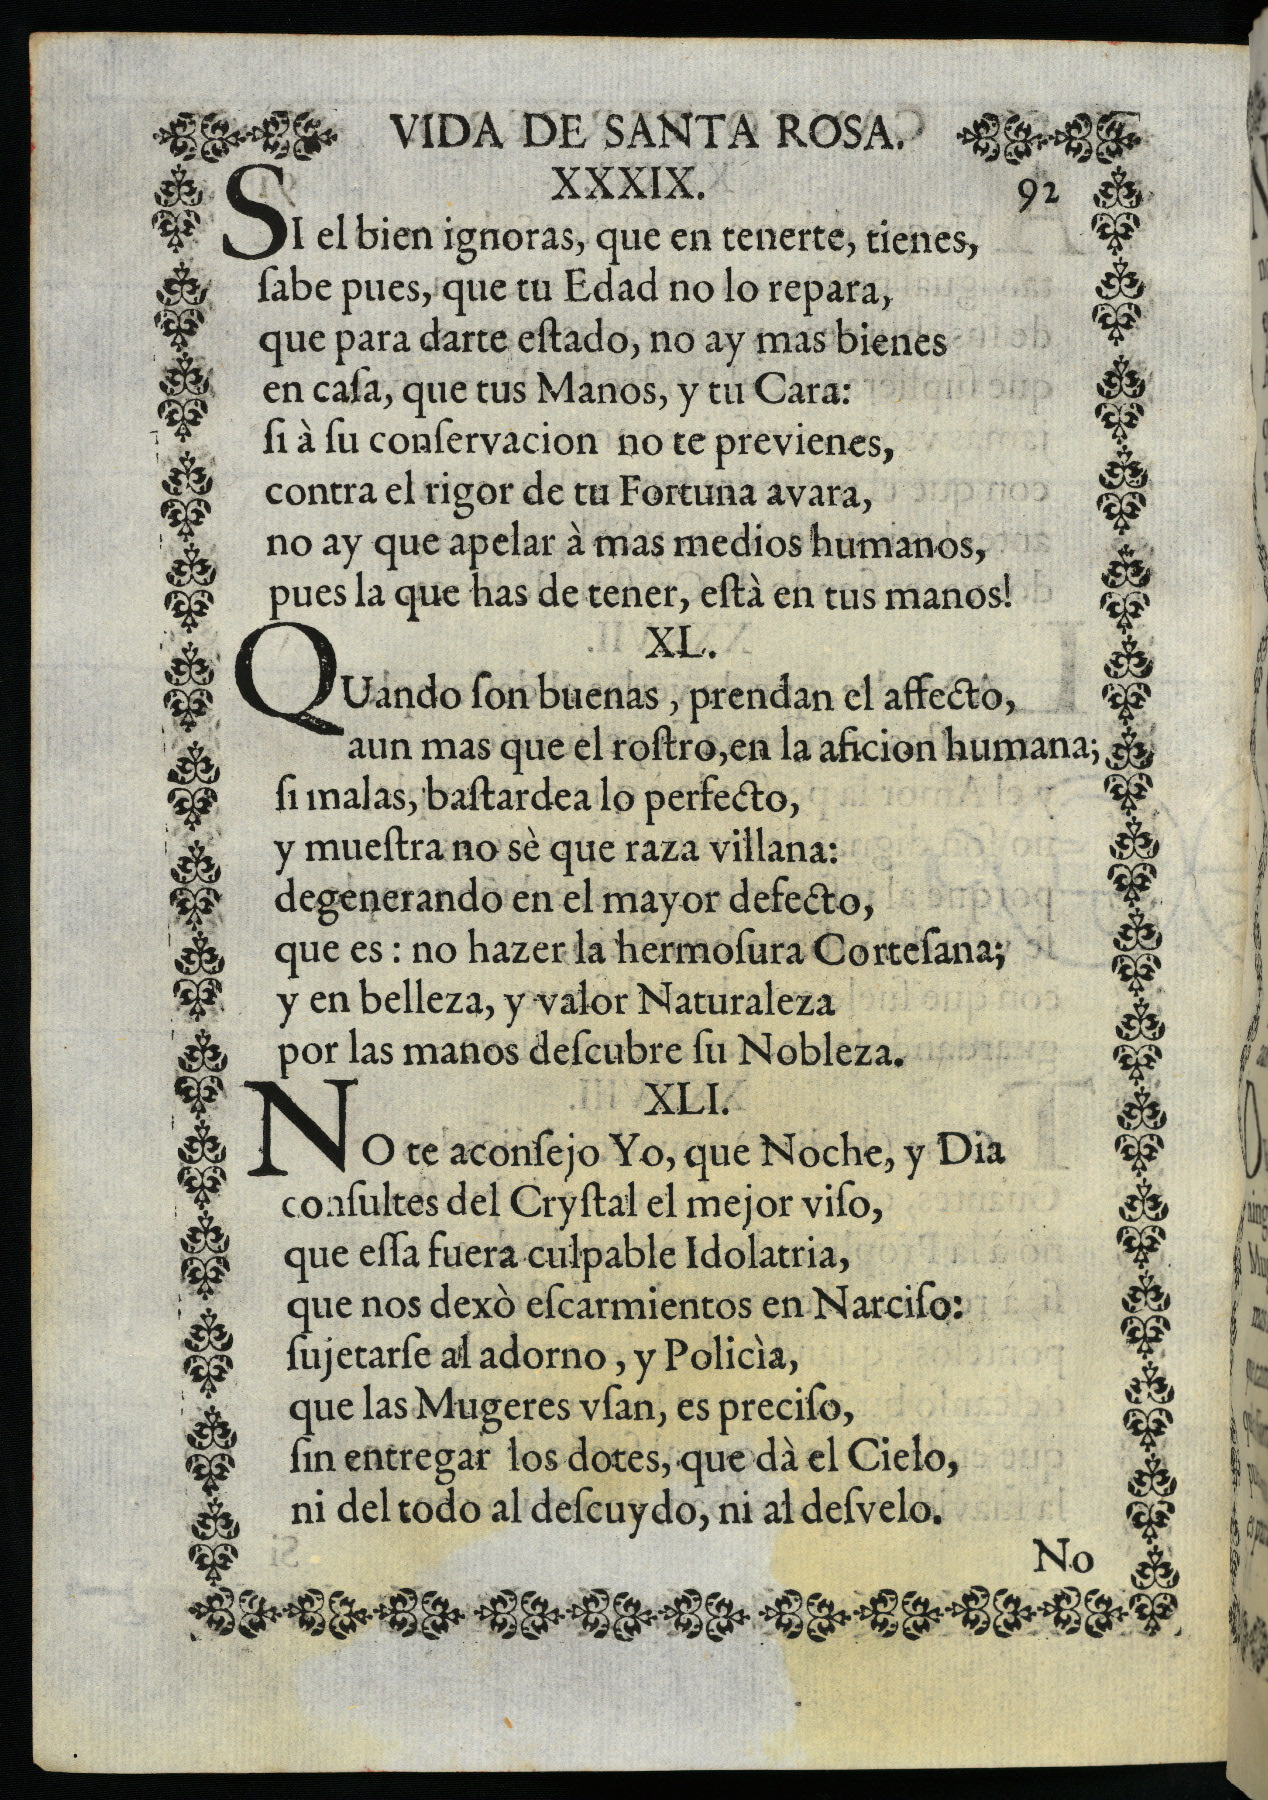 VIDA DE SANTA ROSA.
XXXIX. 92
SI el bien ignoras, que en tenerte, tienes,
ſabe pues, que tu Edad no lo repara,
que para darte eſtado, no ay mas bienes
en caſa, que tus Manos, y tu Cara:
ſi à ſu conſervacion no te previenes,
contra el rigor de tu Fortuna avara,
no ay que apelar à mas medios humanos,
pues la que has de tener, eſtà en tus manos!
XL.
QUando ſon buenas , prendan el affecto,
aun mas que el roſtro,en la aficion humana;
ſi malas, baſtardea lo perfecto,
y mueſtra no sè que raza villana:
degenerando en el mayor defecto,
que es : no hazer la hermoſura Corteſana;
y en belleza, y valor Naturaleza
por las manos deſcubre ſu Nobleza.
XLI.
NO te aconſejo Yo, que Noche, y Dia
conſultes del Cryſtal el mejor viſo,
que eſſa fuera culpable Idolatria,
que nos dexò eſcarmientos en Narciſo:
ſujetarſe al adorno , y Policìa,
que las Mugeres vſan, es preciſo,
ſin entregar los dotes, que dà el Cielo,
ni del todo al deſcuydo, ni al deſvelo.
No